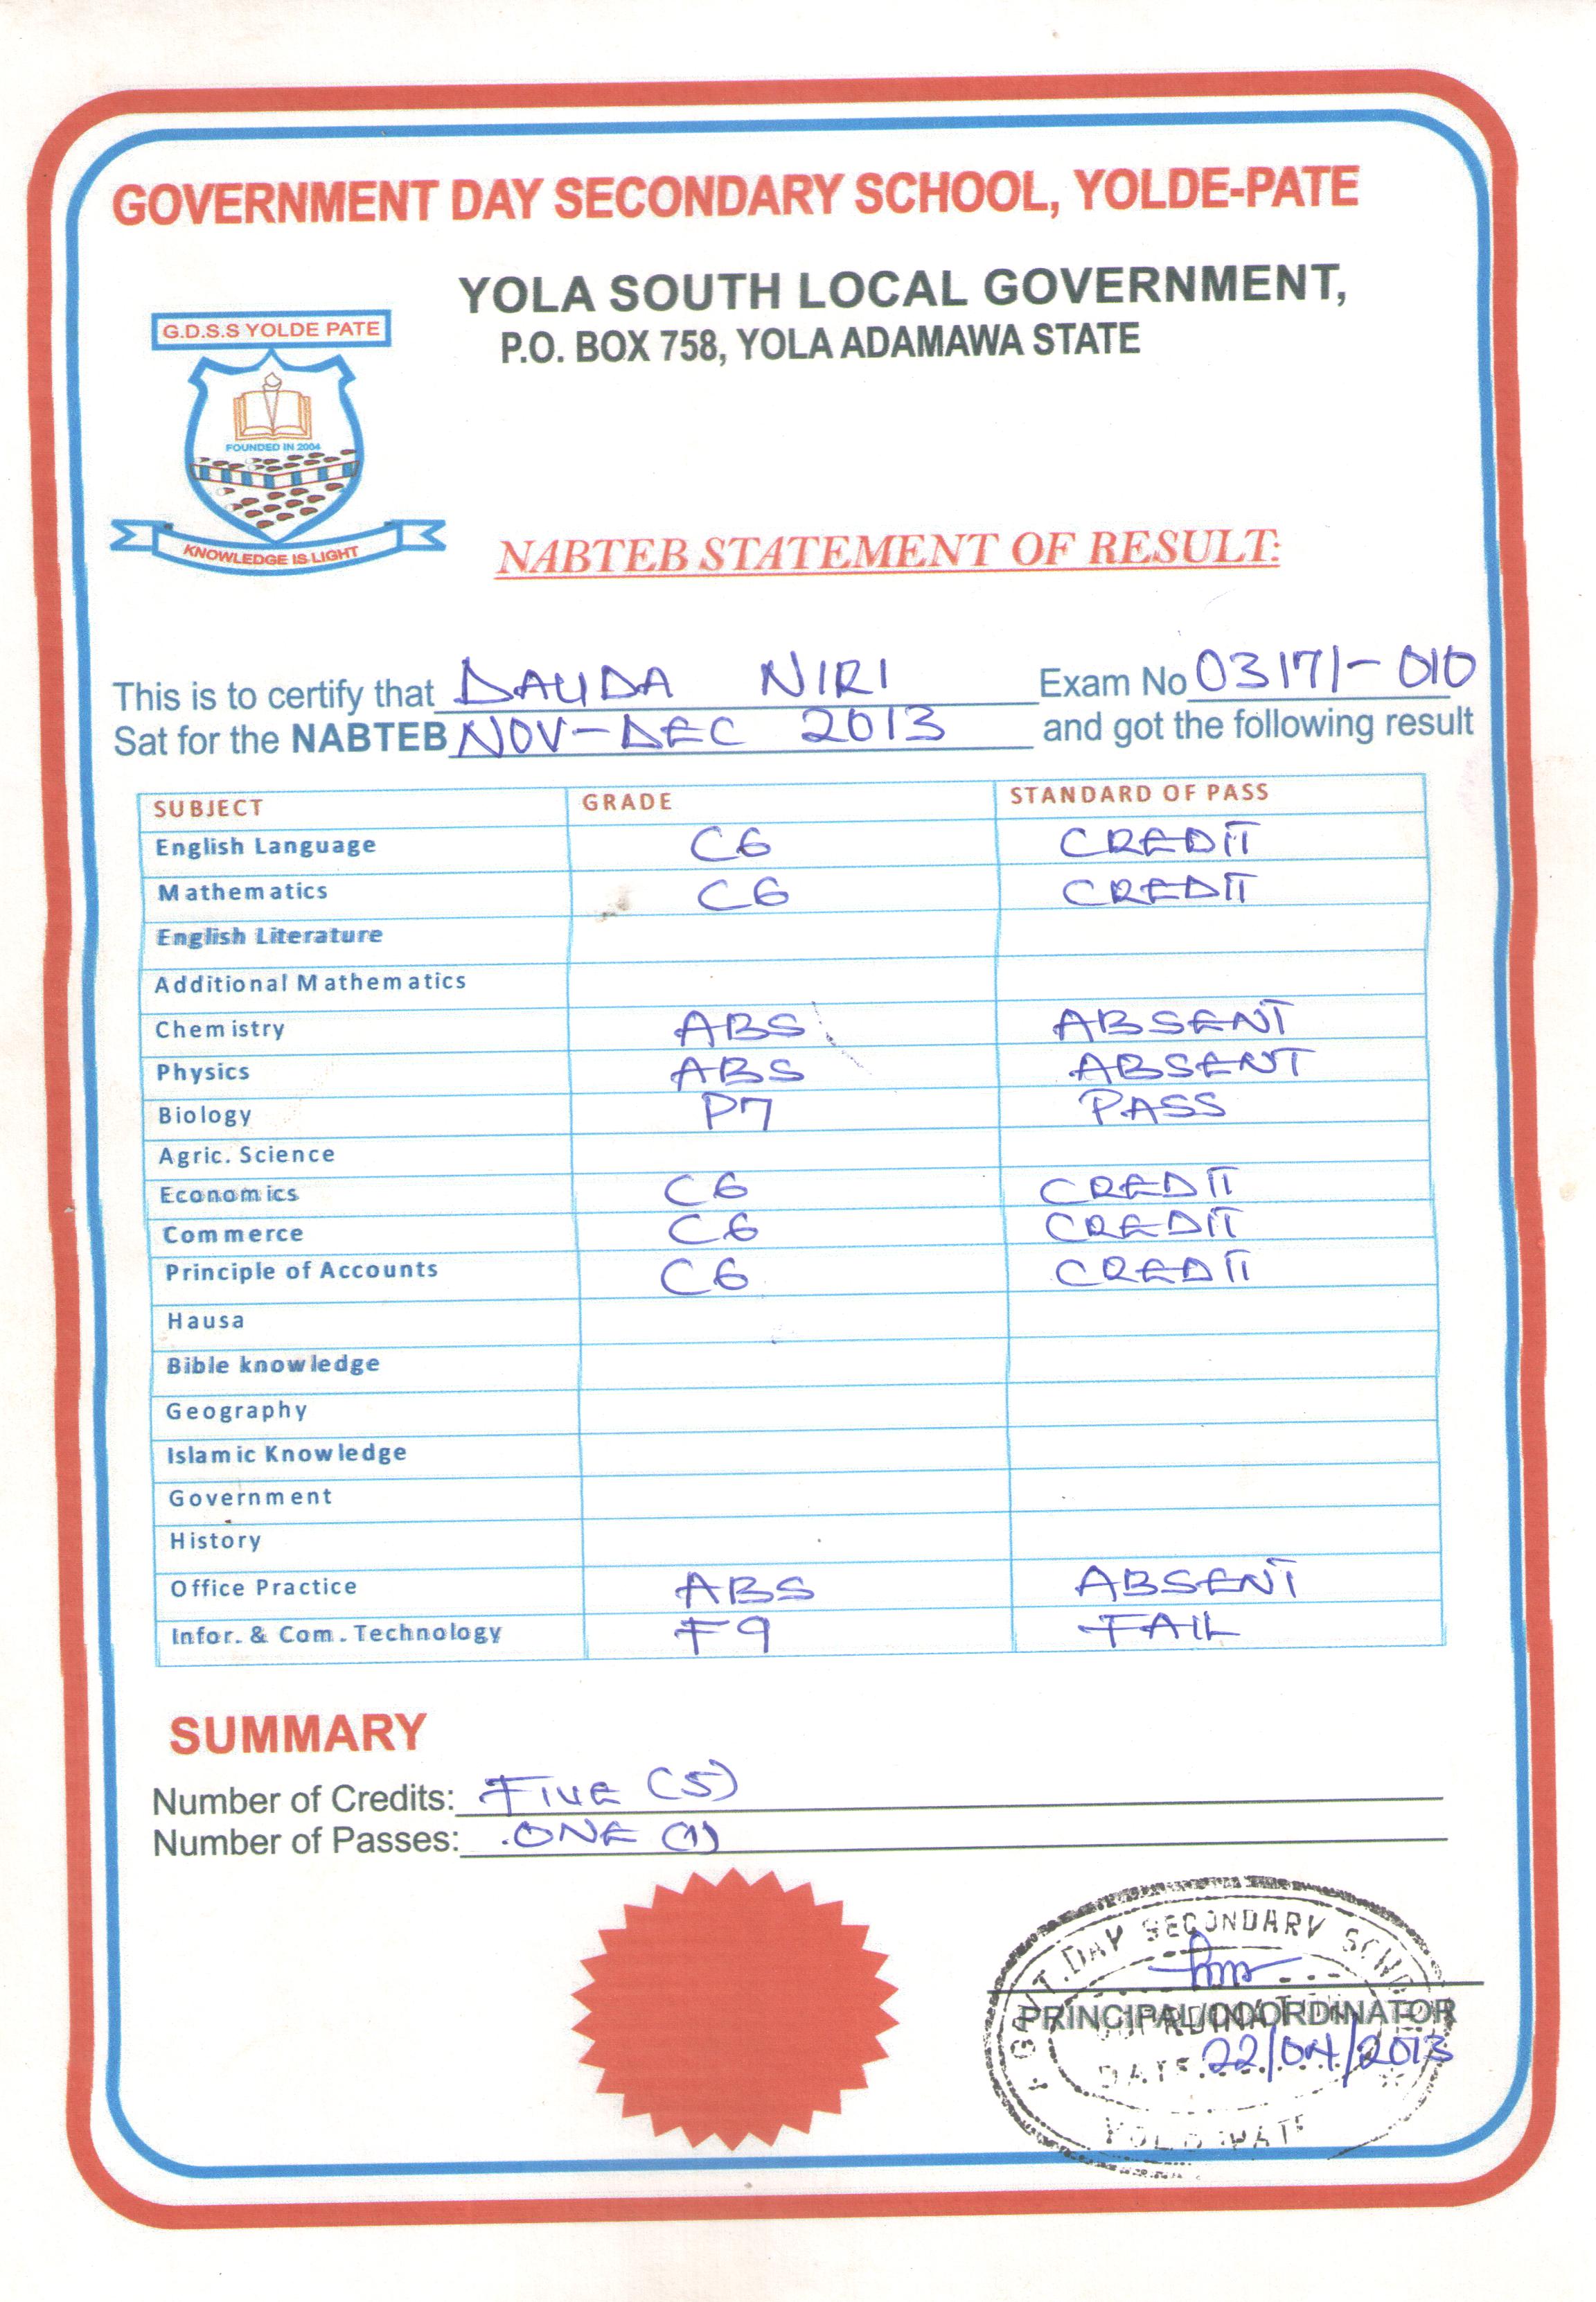 GOVERNMENT DAY SECONDARY SCHOOL, YOLDE-PATE
YOLA SOUTH LOCAL GOVERNMENT,
P.O. BOX 758, YOLA ADAMAWA STATE
G.D.S.S YOLDE PATE
FOUNDED IN 2004
KNOWLEDGE IS LIGHT
NABTEB STATEMENT OF RESULT:
This is to certify that DAUDA NIRI Exam No 03171-010
Sat for the NABTEB NOV-DEC 2013 and got the following result
SUBJECT GRADE STANDARD OF PASS
English Language C6 CREDIT
Mathematics C6 CREDIT
English Literature
Additional Mathematics
Chemistry ABS ABSENT
Physics ABS ABSENT
Biology P7 PASS
Agric. Science
Economics C6 CREDIT
Commerce C6 CREDIT
Principle of Accounts C6 CREDIT
Hausa
Bible knowledge
Geography
Islamic Knowledge
Government
History
Office Practice ABS ABSENT
Infor. & Com. Technology F9 FAIL
SUMMARY
Number of Credits: FIVE (5)
Number of Passes: ONE (1)
GOVT. DAY SECONDARY
PRINCIPAL/COORDINATOR
DATE 22/04/2013